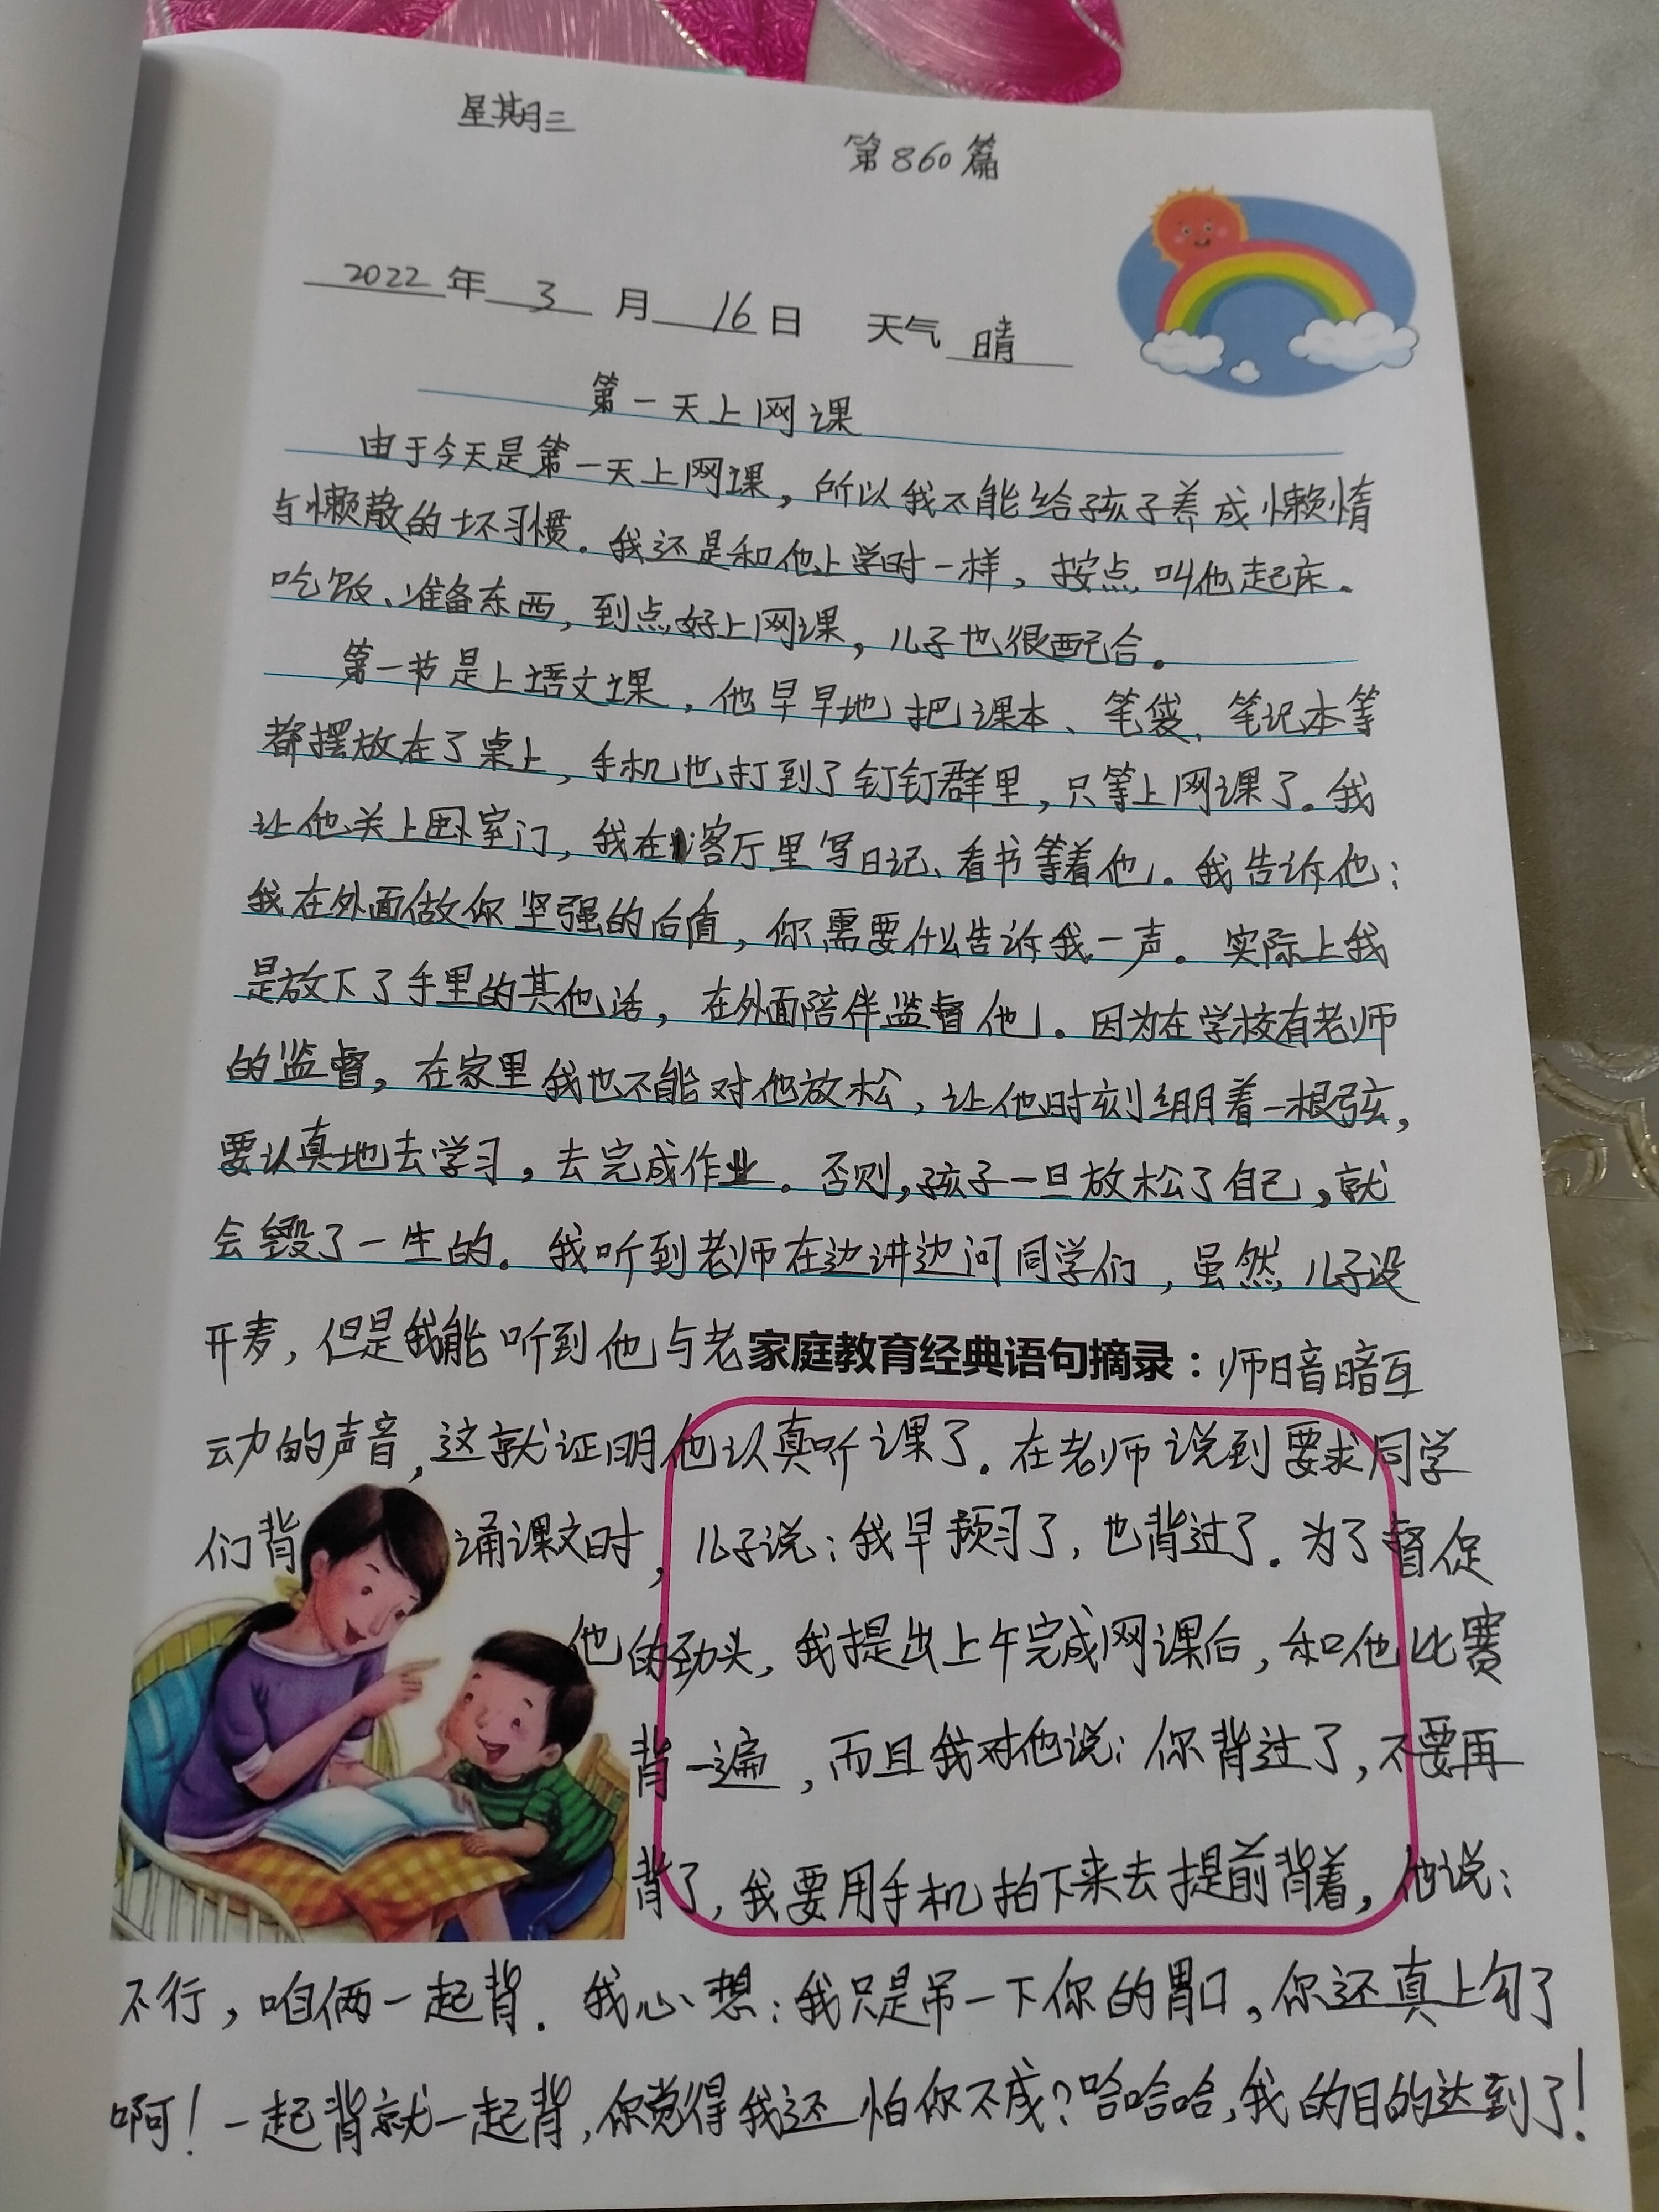 星期三
第860篇
2022年3月16日 天气 晴
第一天上网课
由于今天是第一天上网课，所以我不能给孩子养成懒惰
与懒散的坏习惯。我还是和他上学时一样，按点叫他起床。
吃饭、准备东西，到点好上网课，儿子也很配合。
第一节是上语文课，他早早地把课本、笔袋、笔记本等
都摆放在了桌上，手机也打到了钉钉群里，只等上网课了。我
让他关上卧室门，我在客厅里写日记、看书等着他。我告诉他：
我在外面做你坚强的后盾，你需要什么告诉我一声。实际上我
是放下了手里的其他活，在外面陪伴监督他。因为在学校有老师
的监督，在家里我也不能对他放松，让他时刻绷着一根弦，
要认真地去学习，去完成作业。否则，孩子一旦放松了自己，就
会毁了一生的。我听到老师在边讲边问同学们，虽然儿子没
开麦，但是我能听到他与老家庭教育经典语句摘录：师暗暗互
动的声音，这就证明他认真听课了。在老师说到要求同学
们背诵课文时，儿子说：我早预习了，也背过了。为了督促
他的劲头，我提出上午完成网课后，和他比赛
背一遍，而且我对他说：你背过了，不要再
背了，我要用手机拍下来去提前背着，他说：
不行，咱俩一起背。我心想：我只是吊一下你的胃口，你还真上勾了
啊！一起背就一起背，你觉得我还怕你不成？哈哈哈，我的目的达到了！